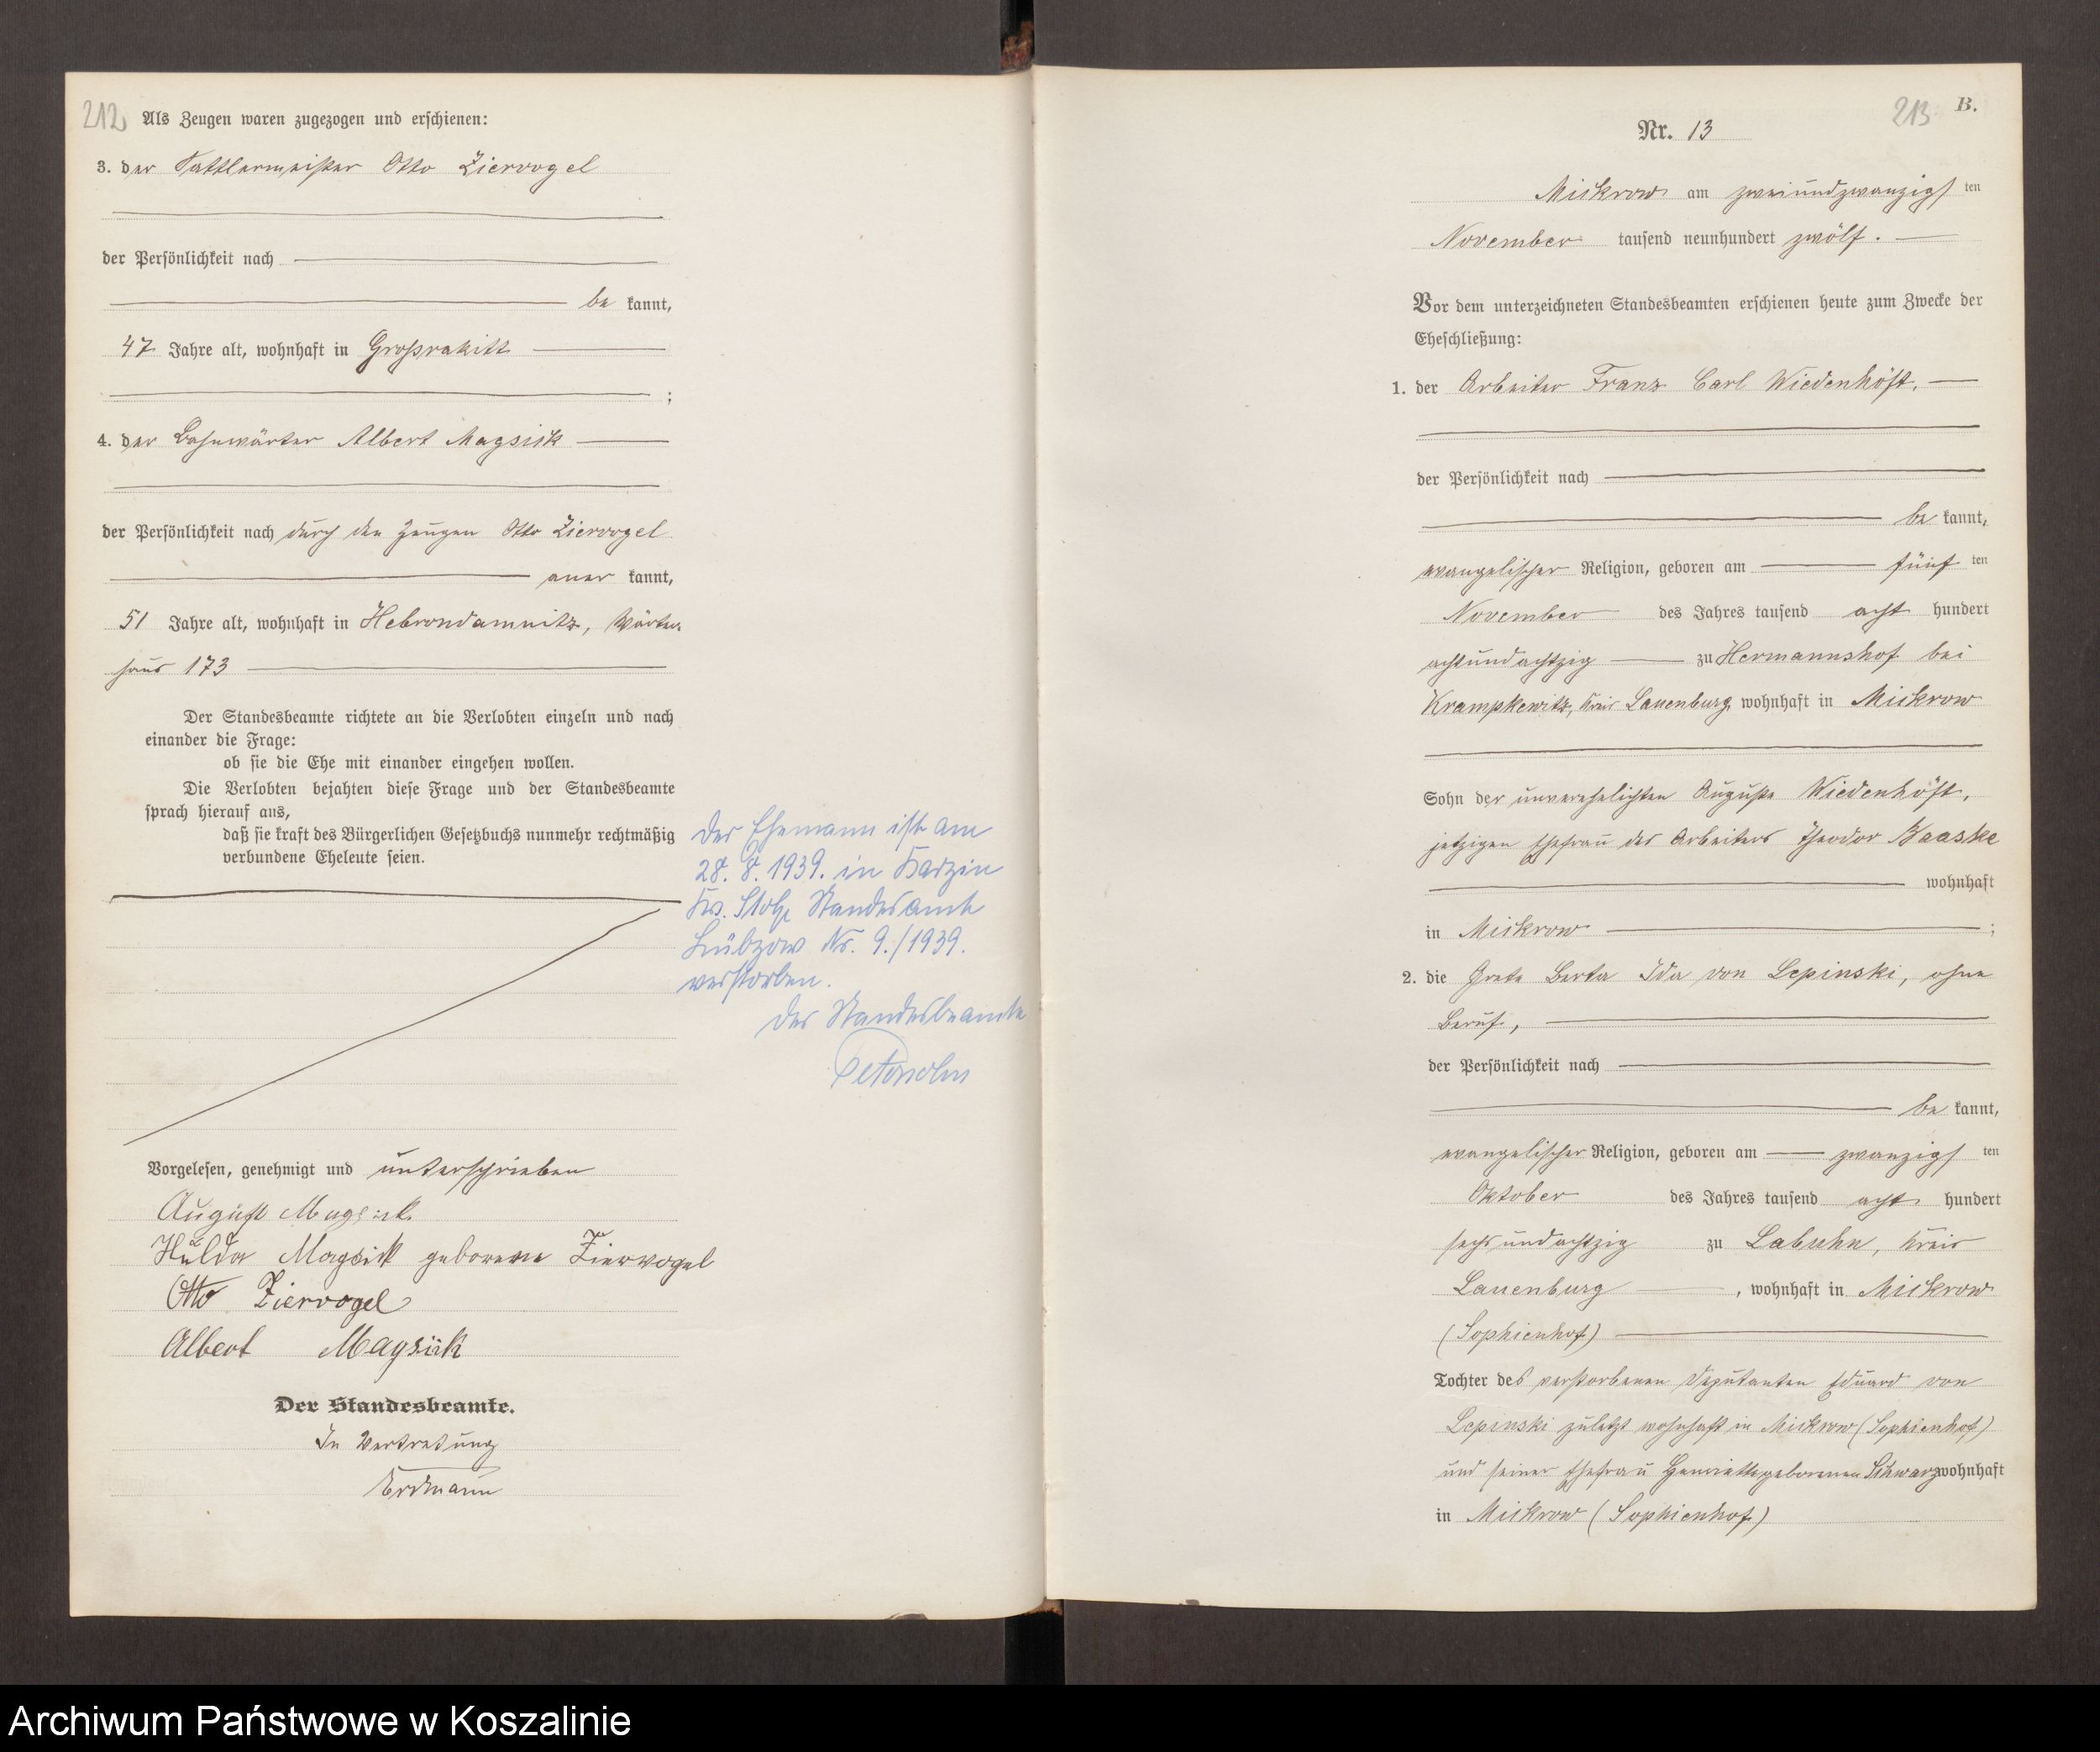 212
Als Zeugen waren zugezogen und erschienen:
3. der Sattlermeister Otto Ziervogel
der Persönlichkeit nach
be kannt,
47 Jahre alt, wohnhaft in Großrakitt
;
4. der Bahnwärter Albert Magsick
der Persönlichkeit nach durch den Zeugen Otto Ziervogel
aner kannt,
51 Jahre alt, wohnhaft in Hebrondamnitz, Wärter-
haus 173
Der Standesbeamte richtete an die Verlobten einzeln und nach
einander die Frage:
ob sie die Ehe mit einander eingehen wollen.
Die Verlobten bejahten diese Frage und der Standesbeamte
sprach hierauf aus,
daß sie kraft des Bürgerlichen Gesetzbuchs nunmehr rechtmäßig
verbundene Eheleute seien.
Der Ehemann ist am
28. 8. 1939. in Karzin
Krs. Stolp Standesamt
Lübzow Nr. 9./1939.
verstorben.
Der Standesbeamte
Vorgelesen, genehmigt und unterschrieben
August Magsick
Hulda Magsick geborene Ziervogel
Otto Ziervogel
Albert Magsick
Der Standesbeamte.
In Vertretung
Erdmann
213
B.
Nr. 13
Mickrow am zweiundzwanzigs ten
November tausend neunhundert zwölf.
Vor dem unterzeichneten Standesbeamten erschienen heute zum Zwecke der
Eheschließung:
1. der Arbeiter Franz Carl Wiedenhöft,
der Persönlichkeit nach
be kannt,
evangelischer Religion, geboren am fünf ten
November des Jahres tausend acht hundert
achtundachtzig zu Hermannshof bei
Krampkewitz, Kreis Lauenburg wohnhaft in Mickrow
Sohn der unverehelichten Auguste Wiedenhöft,
jetzigen Ehefrau des Arbeiters Theodor Kaaske
wohnhaft
in Mickrow ;
2. die Grete Berta Ida von Lepinski, ohne
Beruf,
der Persönlichkeit nach
be kannt,
evangelischer Religion, geboren am zwanzigs ten
Oktober des Jahres tausend acht hundert
sechsundachtzig zu Labuhn, Kreis
Lauenburg , wohnhaft in Mickrow
(Sophienhof)
Tochter des verstorbenen Deputanten Eduard von
Lepinski zuletzt wohnhaft in Mickrow (Sophienhof)
und seiner Ehefrau Henriette geborenen Schwarz wohnhaft
in Mickrow (Sophienhof)
Archiwum Państwowe w Koszalinie